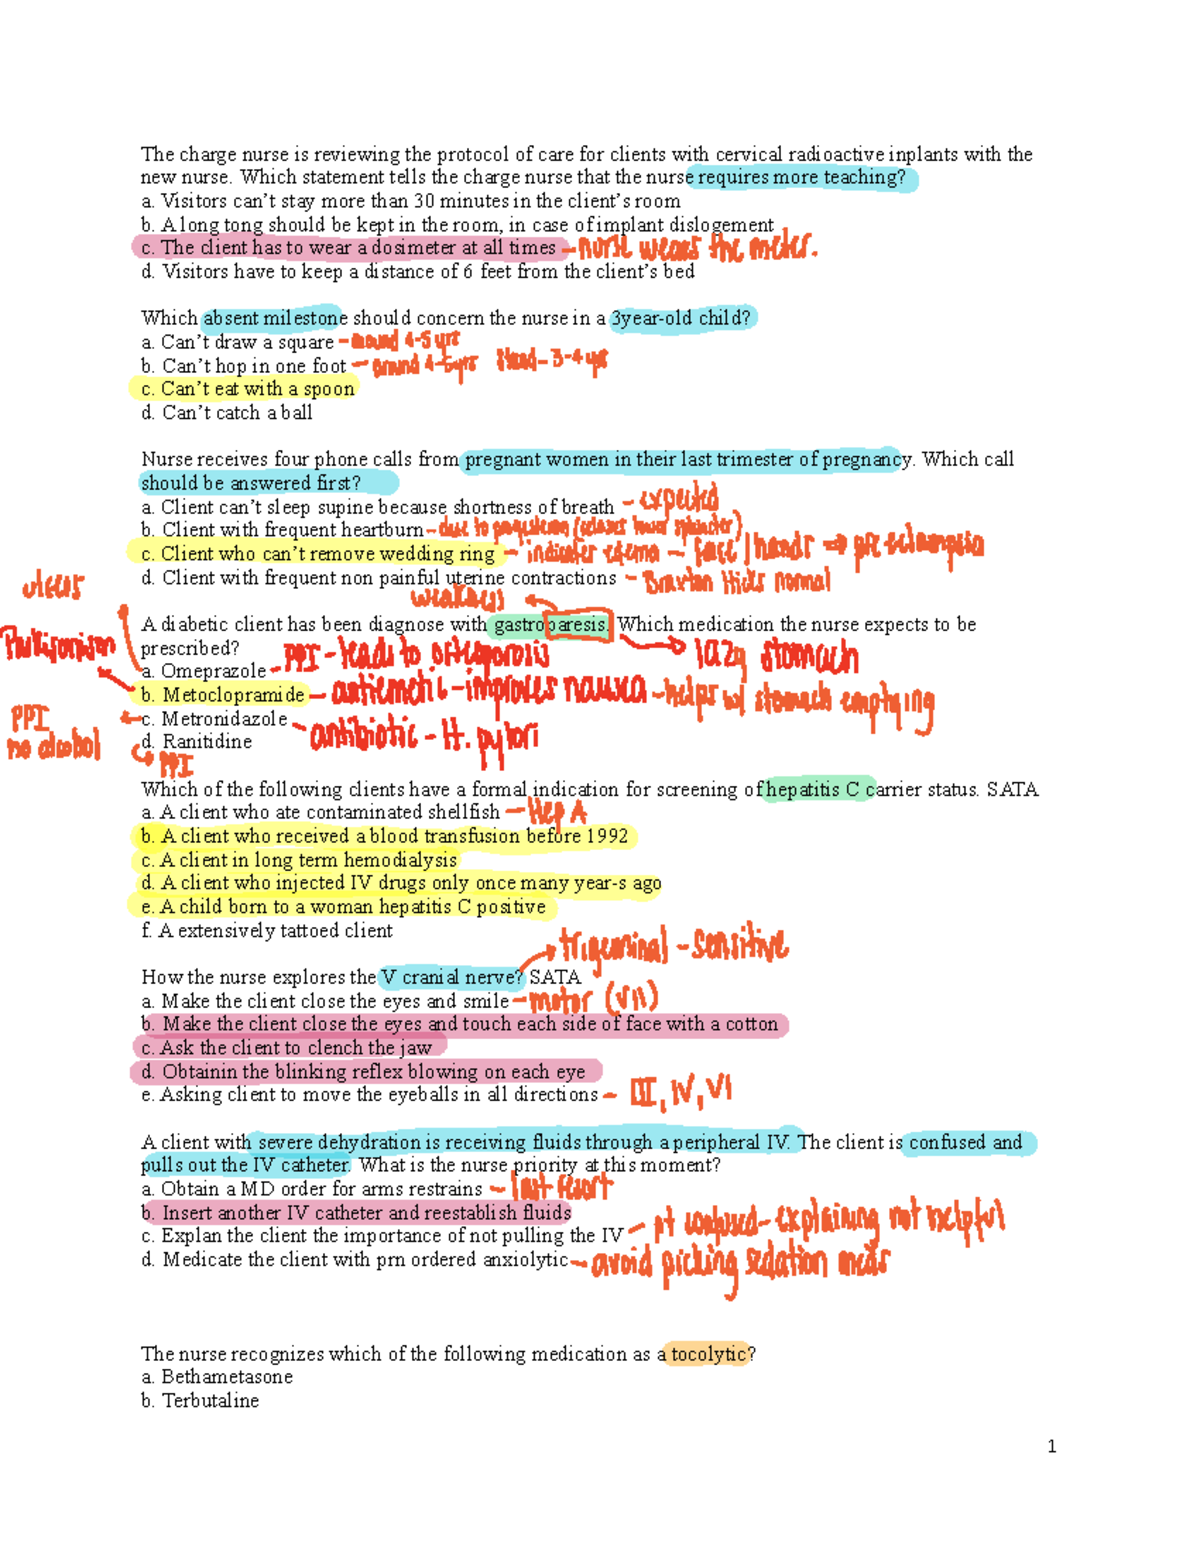 The charge nurse is reviewing the protocol of care for clients with cervical radioactive inplants with the
new nurse. Which statement tells the charge nurse that the nurse requires more teaching?
a. Visitors can't stay more than 30 minutes in the client's room
b. A long tong should be kept in the room, in case of implant dislogement
c. The client has to wear a dosimeter at all times – nurse wears the meter.
d. Visitors have to keep a distance of 6 feet from the client's bed
Which absent milestone should concern the nurse in a 3year-old child?
a. Can't draw a square – around 4-5 yrs
b. Can't hop in one foot – around 4-5yrs stand – 3-4 yrs
c. Can't eat with a spoon
d. Can't catch a ball
Nurse receives four phone calls from pregnant women in their last trimester of pregnancy. Which call
should be answered first?
a. Client can't sleep supine because shortness of breath – expected
b. Client with frequent heartburn – due to (relaxes lower sphincter)
c. Client who can't remove wedding ring – indicates edema – face / hands ⇒ preeclampsia
d. Client with frequent non painful uterine contractions – Braxton Hicks normal
ulcers
weakness
A diabetic client has been diagnose with gastroparesis. Which medication the nurse expects to be
prescribed?
lazy stomach
a. Omeprazole – PPI – leads to osteoporosis
Parkinsonism
b. Metoclopramide – antiemetic – improves nausea – helps w/ stomach emptying
PPI
no alcohol
c. Metronidazole – antibiotic – H. pylori
d. Ranitidine
PPI
Which of the following clients have a formal indication for screening of hepatitis C carrier status. SATA
a. A client who ate contaminated shellfish – Hep A
b. A client who received a blood transfusion before 1992
c. A client in long term hemodialysis
d. A client who injected IV drugs only once many year-s ago
e. A child born to a woman hepatitis C positive
f. A extensively tattoed client
trigeminal – sensitive
How the nurse explores the V cranial nerve? SATA
a. Make the client close the eyes and smile – motor (VII)
b. Make the client close the eyes and touch each side of face with a cotton
c. Ask the client to clench the jaw
d. Obtainin the blinking reflex blowing on each eye
e. Asking client to move the eyeballs in all directions – III, IV, VI
A client with severe dehydration is receiving fluids through a peripheral IV. The client is confused and
pulls out the IV catheter. What is the nurse priority at this moment?
a. Obtain a MD order for arms restrains – last resort
b. Insert another IV catheter and reestablish fluids
c. Explan the client the importance of not pulling the IV – pt confused – explaining not helpful
d. Medicate the client with prn ordered anxiolytic – avoid picking sedation meds
The nurse recognizes which of the following medication as a tocolytic?
a. Bethametasone
b. Terbutaline
1